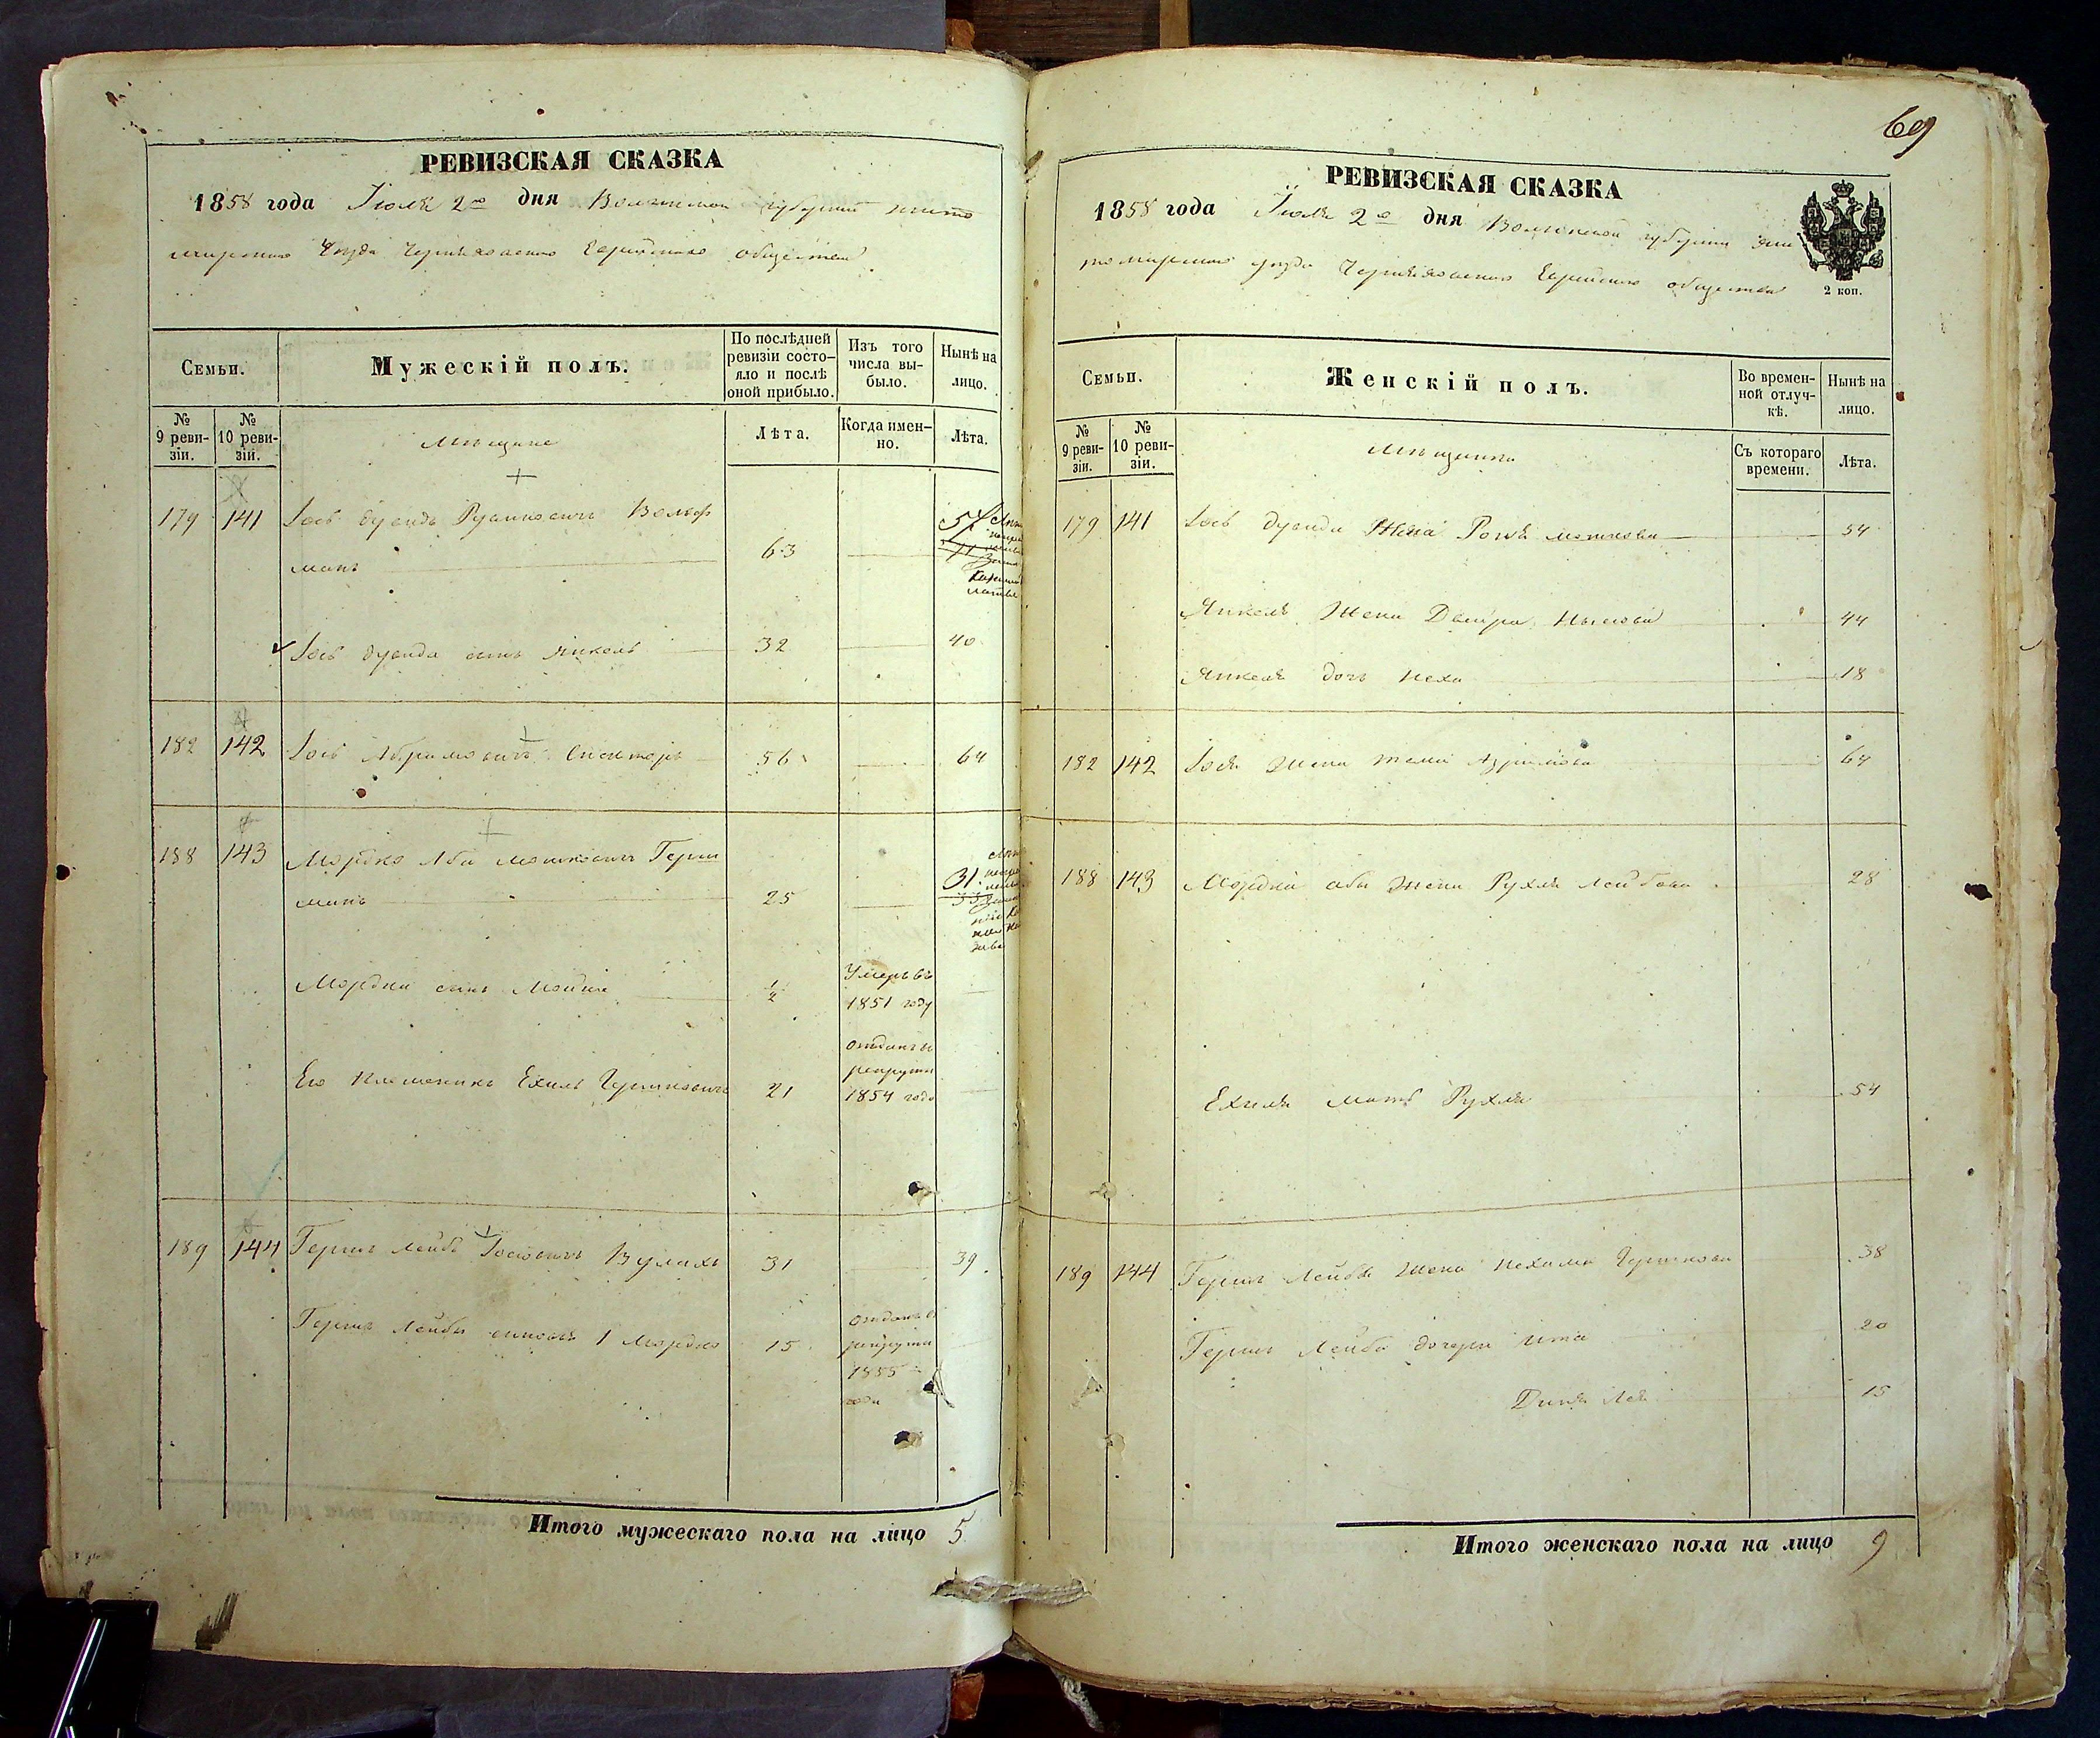 69
РЕВИЗСКАЯ СКАЗКА
1858 года Іюля 2го дня Волынской губерніи жито
мирскаго уѣзда Черняховскаго Еврейскаго общества
Семьи.
Мужескій полъ.
По послѣдней ревизіи состо-
яло и послѣ оной прибыло.
Изъ того числа вы-
было.
Нынѣ на лицо.
№ 9 реви-
зіи.
№ 10 реви-
зіи.
Мѣщане
Лѣта.
Когда имен-
но.
Лѣта.
179 141 Іось Вольф
манъ 63
54
Іось сынъ Янкель 32 40
182 142 Іось Абрамовичъ 56 64
188 143 Мордко Аба Мошковичъ Герш
манъ 25
31
Мордки сынъ ½ Умеръ въ
1851 году
Его племеникъ Ехиль Гершковичъ 21 отданъ въ
рекруты
1854 года
189 144 Гершъ Лейба Іосіовичъ Вулахъ 31 39
Гершъ Лейбы сыновья 1 Мордко 15 отданъ в
рекруты
1855
года
Итого мужескаго пола на лицо 5
РЕВИЗСКАЯ СКАЗКА
1858 года Іюля 2го дня Волынской губерніи жи
томирскаго уѣзда Черняховскаго Еврейскаго общества
2 коп.
Семьи.
Женскій полъ.
Во времен-
ной отлуч-
кѣ.
Нынѣ на лицо.
№ 9 реви-
зіи.
№ 10 реви-
зіи.
Мѣщанки
Съ котораго времени.
Лѣта.
179 141 Іось жена Мошкова 54
Янкеля жена Двейра 44
Янкеля дочь Неха 18
182 142 Іося жена 64
188 143 Мордки Абы жена Рухля Лейбова 28
Ехиля мать Рухля 54
189 144 Гершъ Лейбы жена Нехама Гершкова 38
Гершъ Лейбы дочери Ита 20
Диня Лея 15
Итого женскаго пола на лицо 9